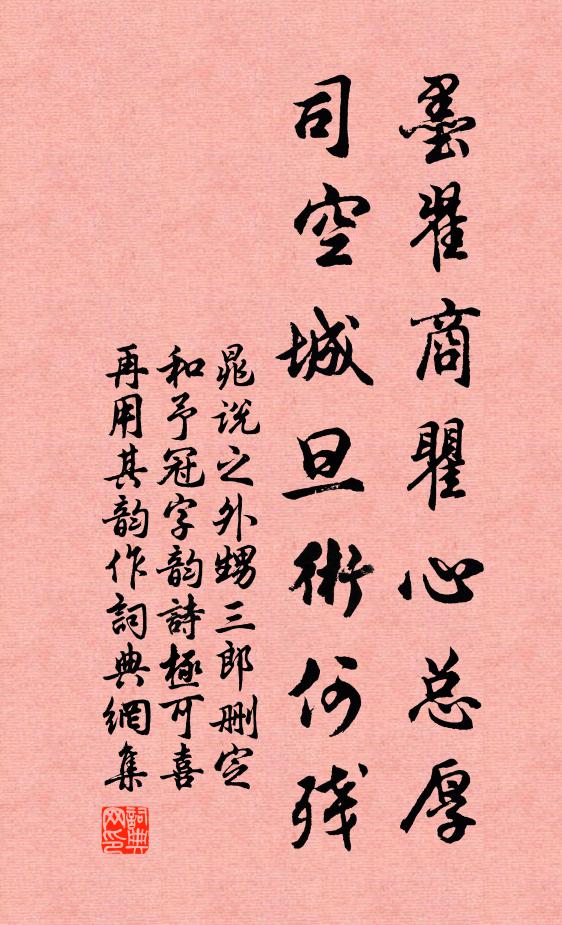 墨翟商瞿心总厚
司空城旦術何殘
晁说之外甥三郎删定
和予冠字韵詩極可喜
再用其韵作詞典網集
詞典网印